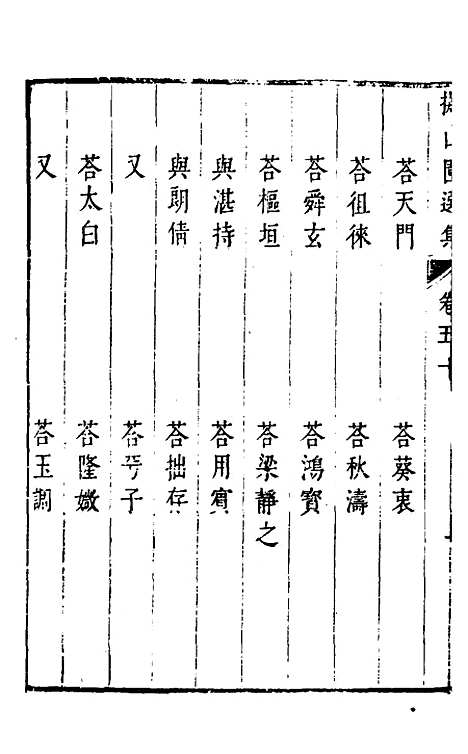 山園選集 卷五十
荅天門 荅葵衷
荅徂徠 荅秋濤
荅舜玄 荅鴻寳
荅樞垣 荅梁靜之
與湛持 荅用賔
與朗倩 荅拙存
又 荅𠵇子
荅太白 荅隆媺
又 荅玉調